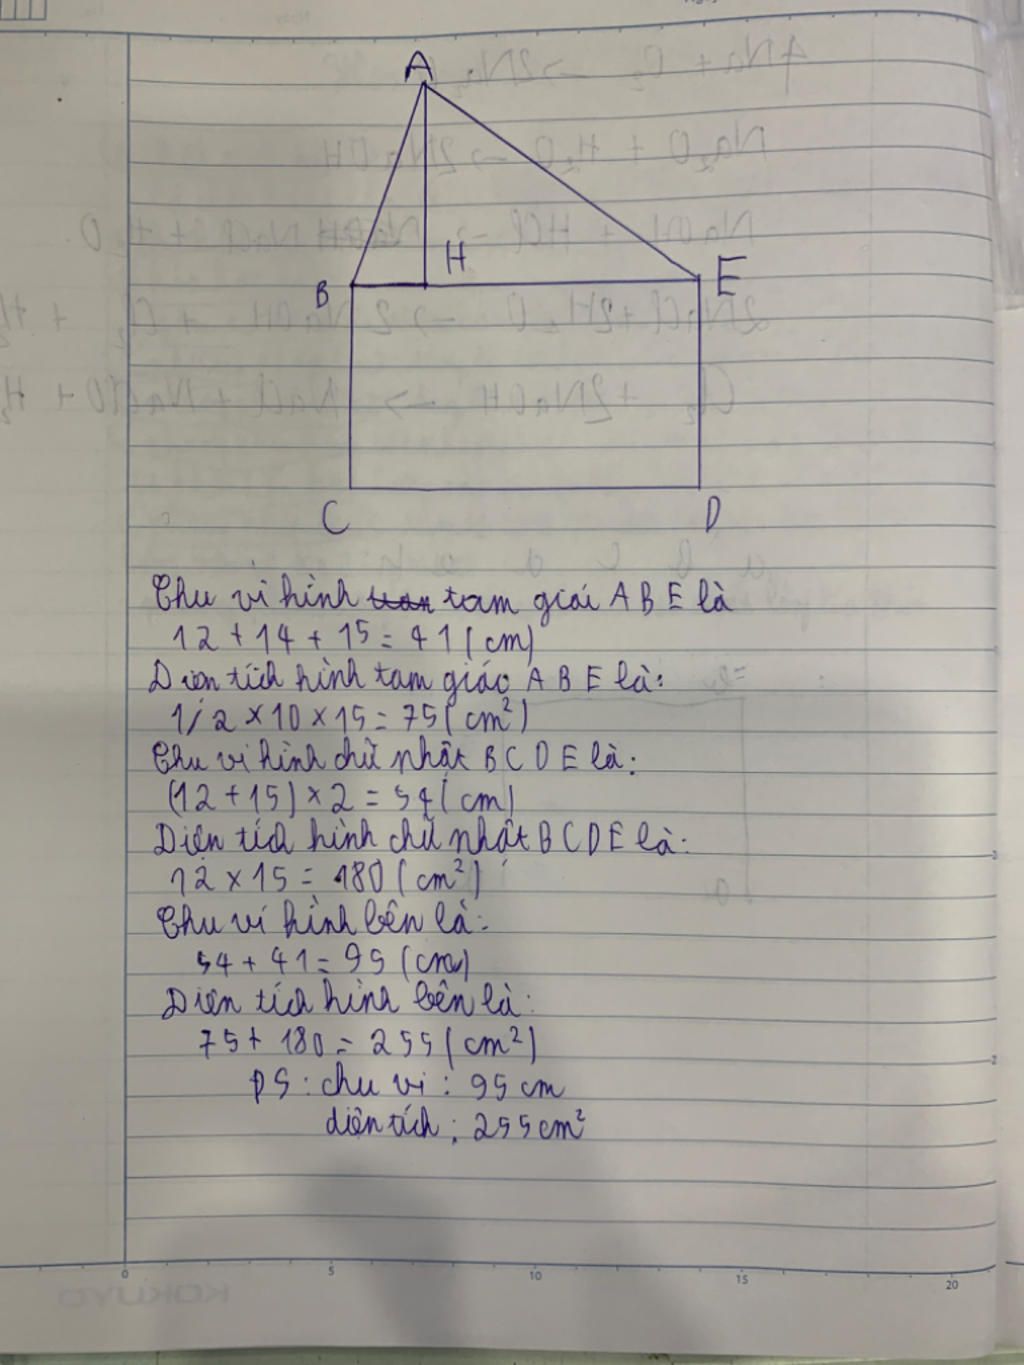 A
H
B
E
C
D
Chu vi hình tam giái A B E là
12 + 14 + 15 = 41 (cm)
Diện tích hình tam giác A B E là:
1/2 × 10 × 15 = 75 (cm²)
Chu vi hình chữ nhật B C D E là:
(12 + 15) × 2 = 54 (cm)
Diện tích hình chữ nhật B C D E là:
12 × 15 = 180 (cm²)
Chu vi hình bên là:
54 + 41 = 95 (cm)
Diện tích hình bên là:
75 + 180 = 255 (cm²)
ĐS : chu vi : 95 cm
diện tích : 255 cm²
0 5 10 15 20